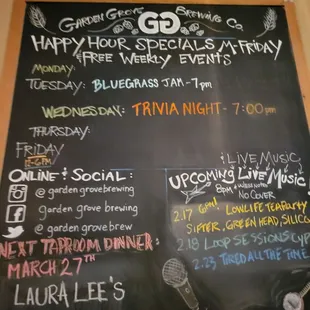 GARDEN GROVE BREWING CO.
GG
HAPPY HOUR SPECIALS M-FRIDAY
& FREE WEEKLY EVENTS
MONDAY:
TUESDAY: BLUEGRASS JAM - 7pm
WEDNESDAY: TRIVIA NIGHT - 7:00pm
THURSDAY:
FRIDAY
& LIVE MUSIC
ONLINE & SOCIAL:
@ gardengrovebrewing
garden grove brewing
@ garden grove brew
NEXT TAPROOM DINNER:
MARCH 27TH
LAURA LEE'S
UPCOMING LIVE MUSIC
8pm
NO COVER
2.17 LOWLIFE TEAPARTY
SIFTER, GREEN HEAD,
2.18 LOOP SESSIONS
2.23 TIRED ALL THE TIME